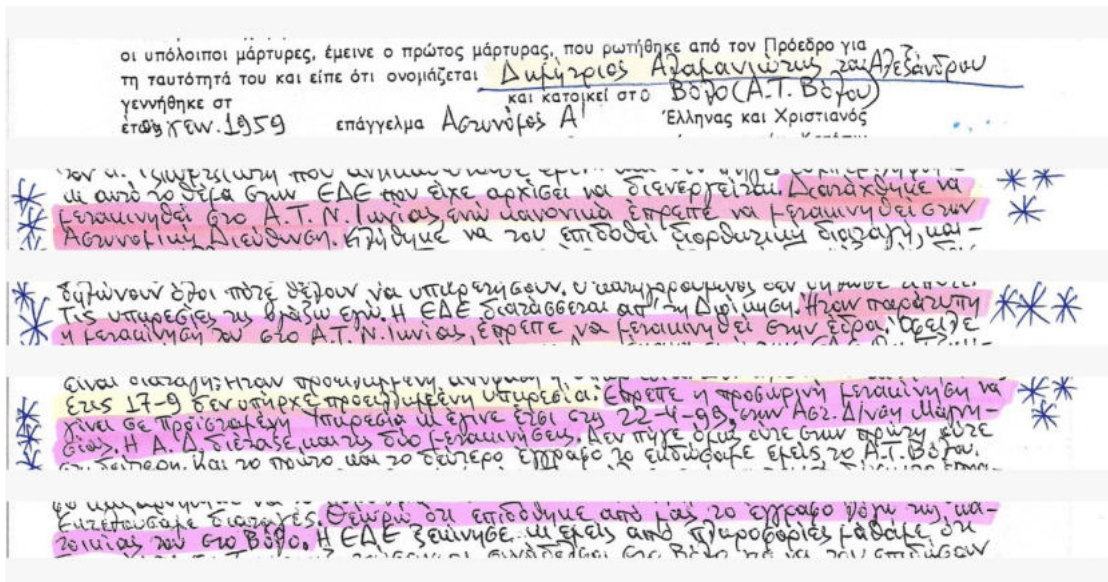 οι υπόλοιποι μάρτυρες, έμεινε ο πρώτος μάρτυρας, που ρωτήθηκε από τον Πρόεδρο για
τη ταυτότητά του και είπε ότι ονομάζεται Δημήτριος Αλαμανιώτης του Αλεξάνδρου
γεννήθηκε στ και κατοικεί στο Βόλο (Α.Τ. Βόλου)
έτος γεν. 1959 επάγγελμα Αστυνόμος Α' Έλληνας και Χριστιανός
κι από το θέμα στην ΕΔΕ που είχε αρχίσει να διενεργείται. Διατάχθηκε να
μετακινηθεί στο Α.Τ. Ν. Ιωνίας, ενώ κανονικά έπρεπε να μετακινηθεί στην
Αστυνομική Διεύθυνση. Κλήθηκε να του επιδοθεί διορθωτική διαταγή, και-
δηλώνουν όλοι πότε θέλουν να υπηρετήσουν. Ο κατηγορούμενος δεν
Τις υπηρεσίες τις βγάζω εγώ. Η ΕΔΕ διατάσσεται απ' τη Διοίκηση. Ήταν παράτυπη
η μετακίνησή του στο Α.Τ. Ν. Ιωνίας, έπρεπε να μετακινηθεί στην έδρα. Όφειλε
είναι διαταγή; Ήταν προειλημμένη
στις 17-9 δεν υπήρχε προειλημμένη υπηρεσία. Έπρεπε η προσωρινή μετακίνηση να
γίνει σε προϊσταμένη Υπηρεσία κι έγινε έτσι στις 22-4-99, στην Αστ. Δ/νση Μαγνη-
σίας. Η Α.Δ. διέταξε και τις δύο μετακινήσεις. Δεν πήγε όμως ούτε στην πρώτη ούτε
στη δεύτερη. Και το πρώτο και το δεύτερο έγγραφο το εκδώσαμε εμείς το Α.Τ. Βόλου.
Εκτελούσαμε διαταγές. Θεωρώ ότι επιδόθηκε από μας το έγγραφο λόγω της κα-
τοικίας του στο Βόλο. Η ΕΔΕ ξεκίνησε κι εμείς από πληροφορίες μάθαμε ότι
συνάδελφοι στο Βόλο να του επιδώσουν